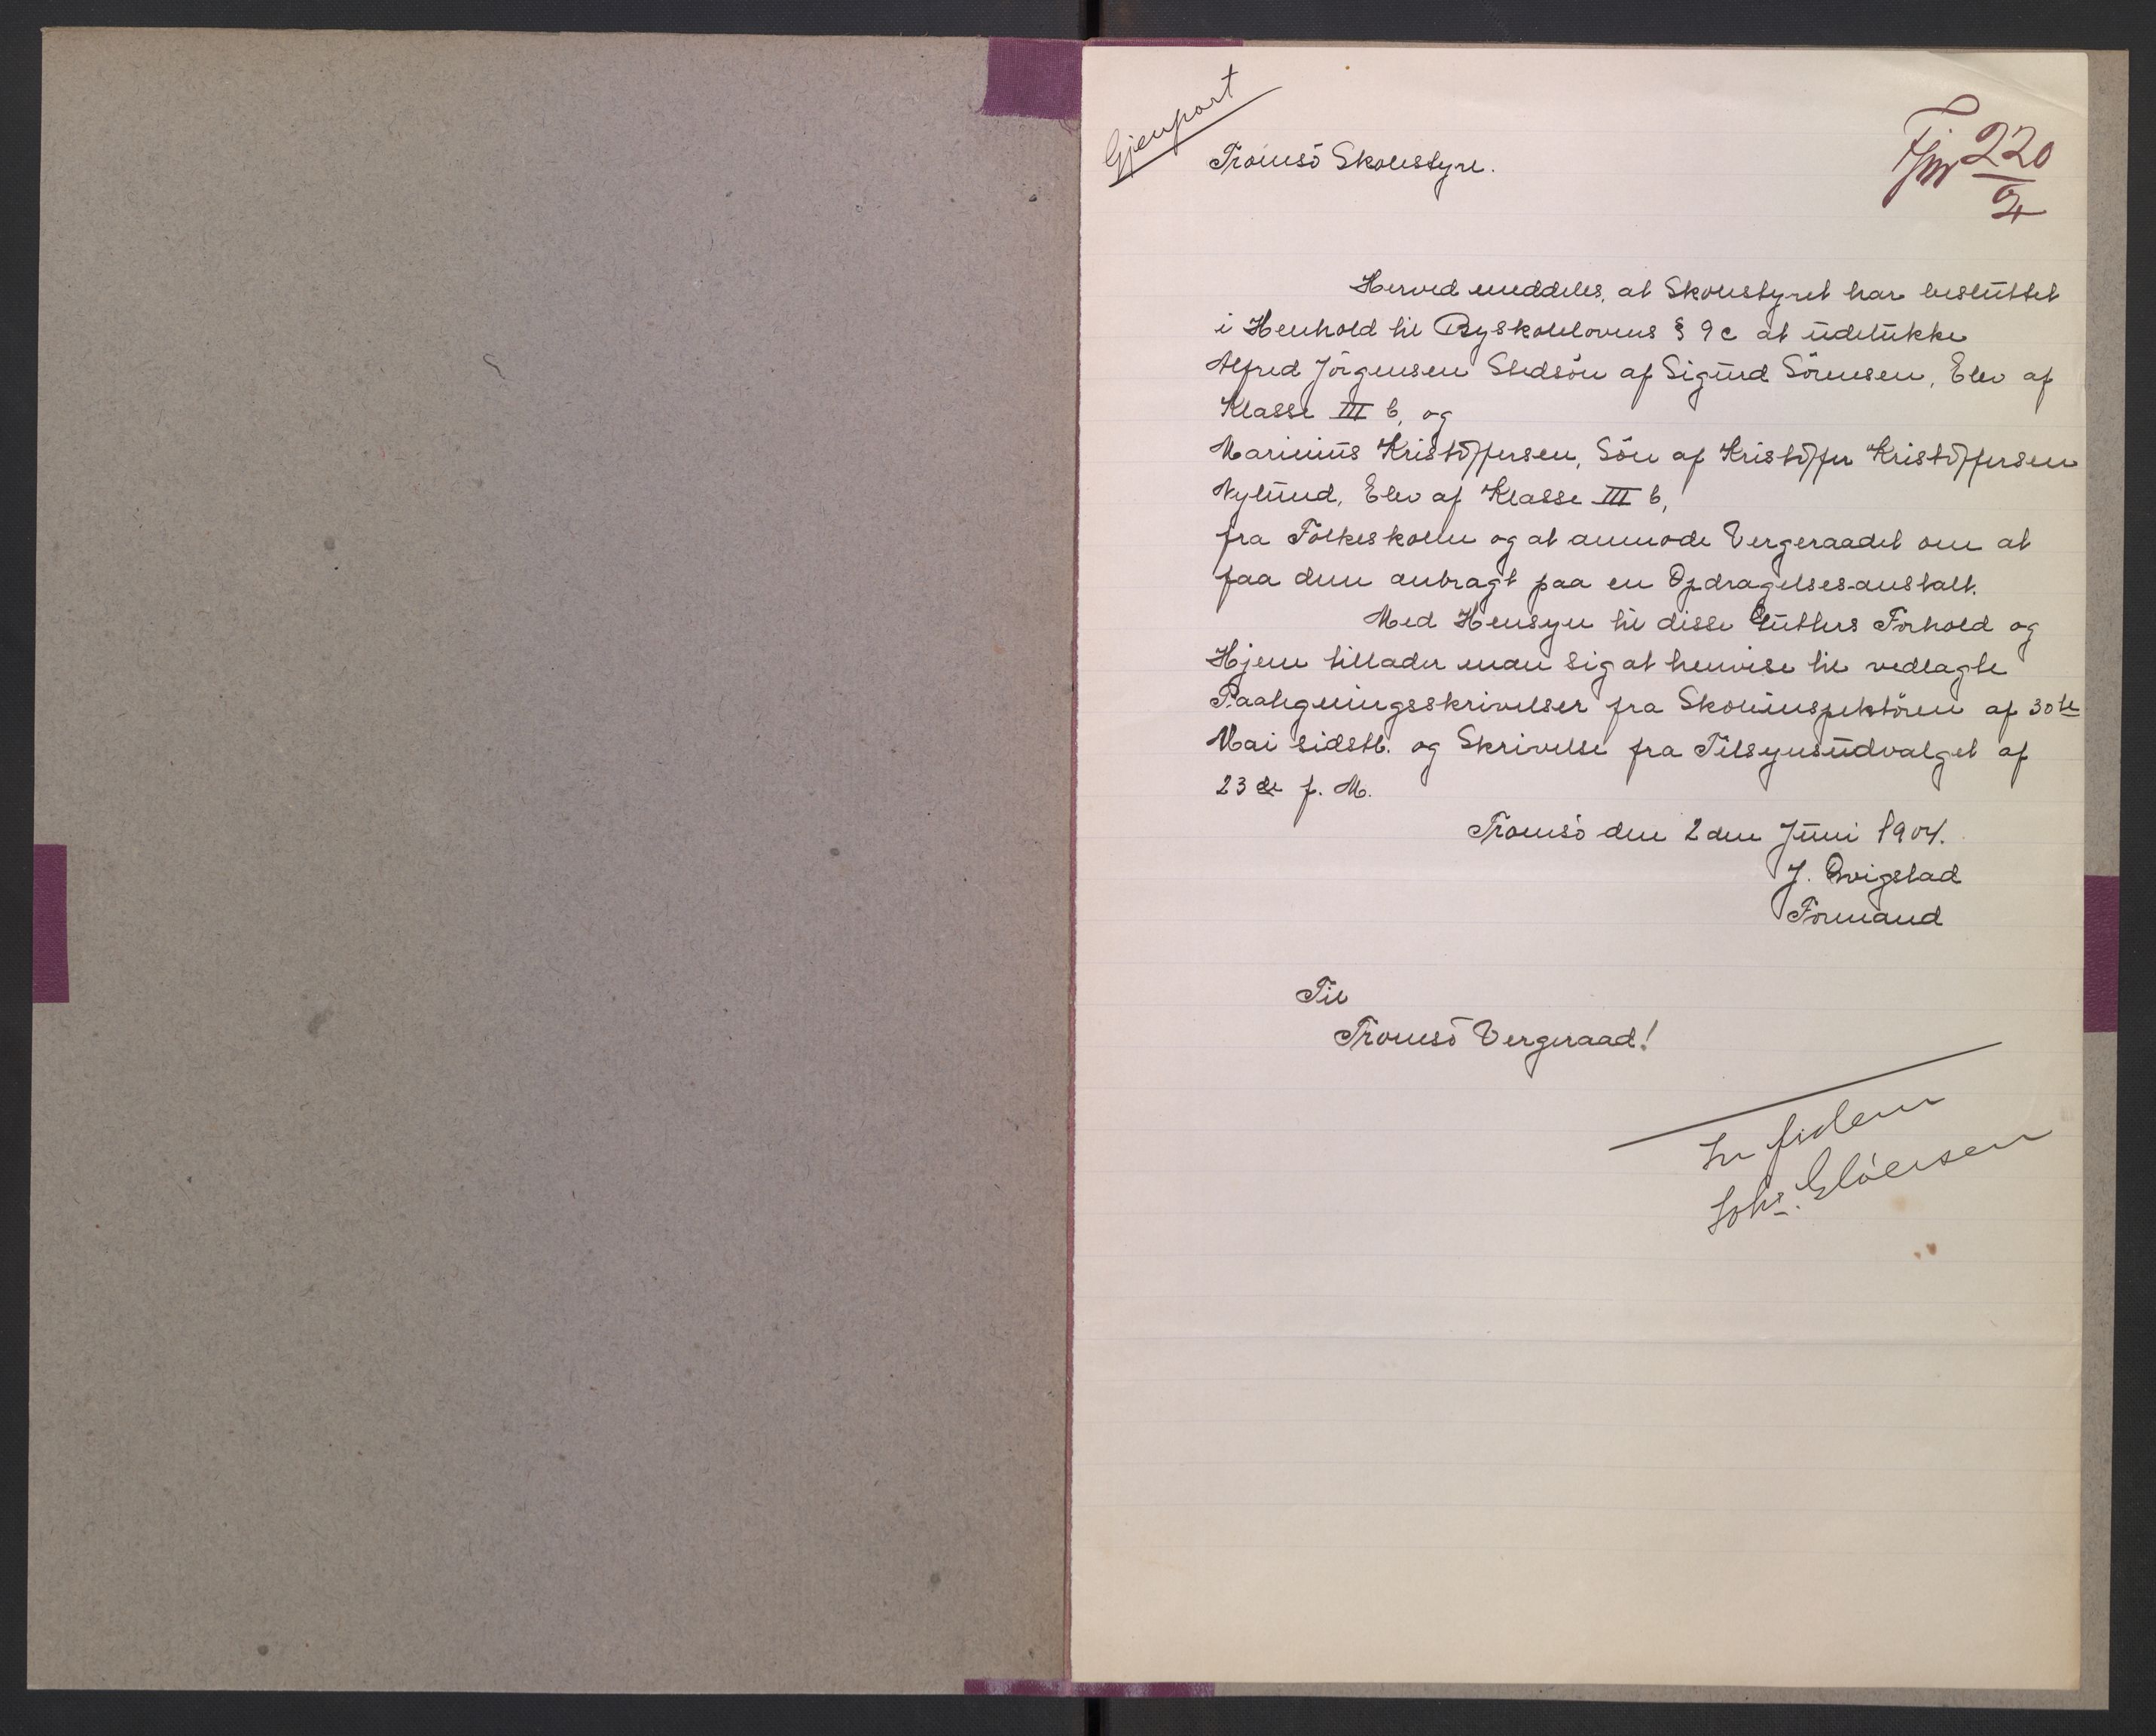 Gjenpart
Tromsö Skolestyre.
Fjm 220/4
Herved meddeles, at Skolestyret har besluttet
i Henhold til Byskolelovens § 9 c at udelukke
Alfred Jörgensen Stedsön af Sigurd Sörensen, Elev af
Klasse III b, og
Marinius Kristoffersen, Sön af Kristoffer Kristoffersen
Nylund, Elev af Klasse III b,
fra Folkeskolen og at anmode Vergeraadet om at
faa dem anbragt paa en Opdragelsesanstalt.
Med Hensyn til disse Gutters Forhold og
Hjem tillader man sig at henvise til vedlagte
Paategningsskrivelser fra Skoleinspektören af 30te
Mai sidstl. og Skrivelse fra Tilsynsudvalget af
23de f. M.
Tromsö den 2den Juni 1904.
J. Qvigstad
Formand
Til
Tromsö Vergeraad!
In fidem
Johs. Glöersen